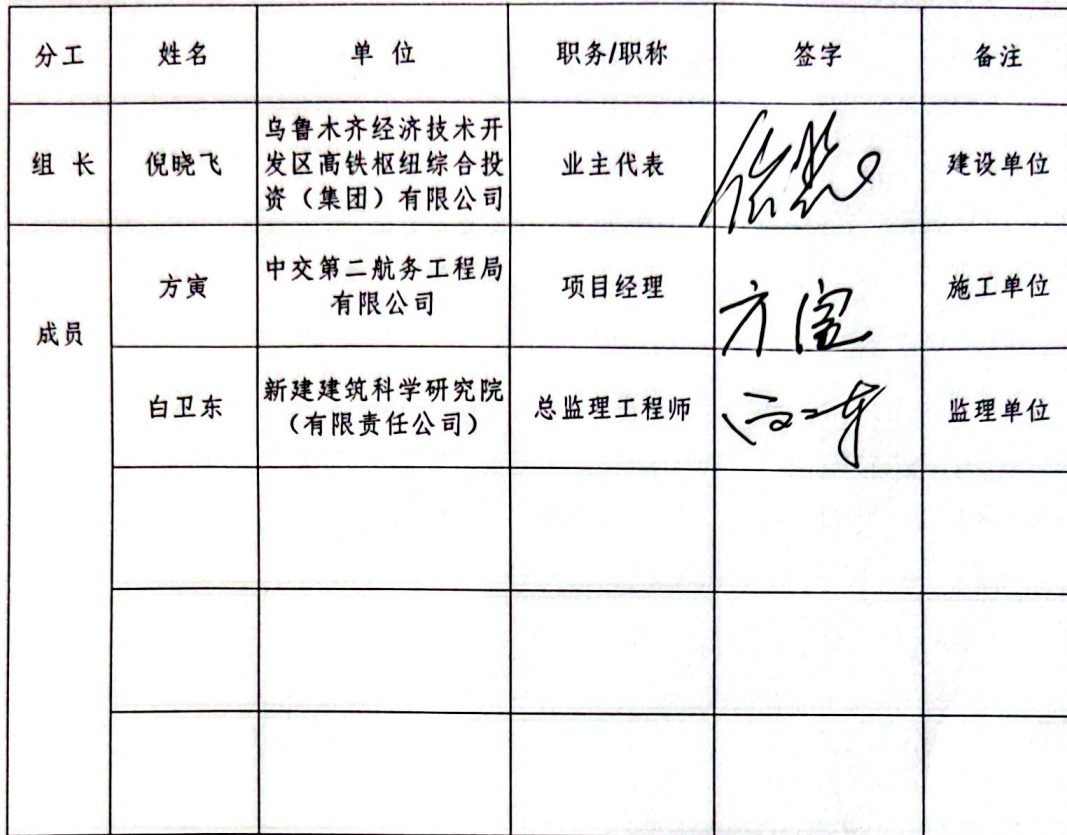 分工 姓名 单 位 职务/职称 签字 备注
组 长 倪晓飞 乌鲁木齐经济技术开
发区高铁枢纽综合投
资（集团）有限公司 业主代表 建设单位
成员 方寅 中交第二航务工程局
有限公司 项目经理 方寅 施工单位
白卫东 新建建筑科学研究院
（有限责任公司） 总监理工程师 监理单位